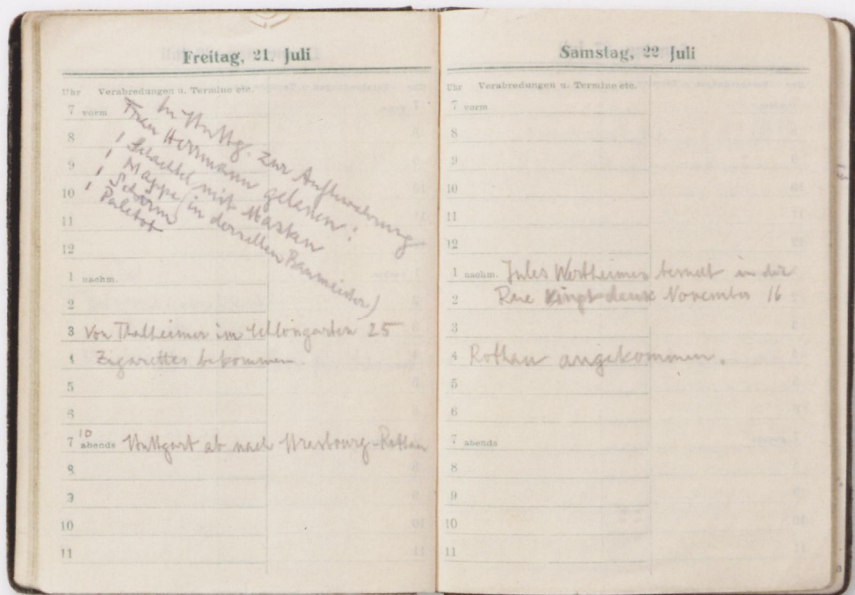 Freitag, 21. Juli
Uhr Verabredungen u. Termine etc.
In Stuttg. zur Aufbewahrung
Frau Herrmann gelassen:
1 Schachtel mit Masken
1 Mappe (in derselben
1 Schirm
Paletot
7 vorm
8
9
10
11
12
1 nachm.
2
3 Von Thalheimer im 25
4 Zigarettes bekommen.
5
6
7 10 abends Stuttgart ab nach Strasbourg-Rothau
8
9
10
11
Samstag, 22 Juli
Uhr Verabredungen u. Termine etc.
7 vorm
8
9
10
11
12
1 nachm. Jules Wertheimer in die
2 Rue November 16
3
4 Rothau angekommen.
5
6
7 abends
8
9
10
11